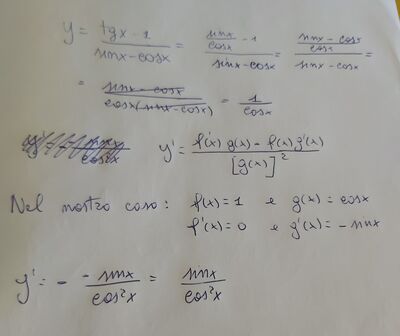 y = (tgx - 1)/(sinx - cosx) = (sinx/cosx - 1)/(sinx - cosx) = ((sinx - cosx)/cosx)/(sinx - cosx) =
= (sinx - cosx)/(cosx(sinx - cosx)) = 1/cosx
y' = (f'(x) g(x) - f(x) g'(x))/[g(x)]²
Nel nostro caso: f(x) = 1 e g(x) = cosx
f'(x) = 0 e g'(x) = - sinx
y' = - (- sinx)/cos²x = sinx/cos²x